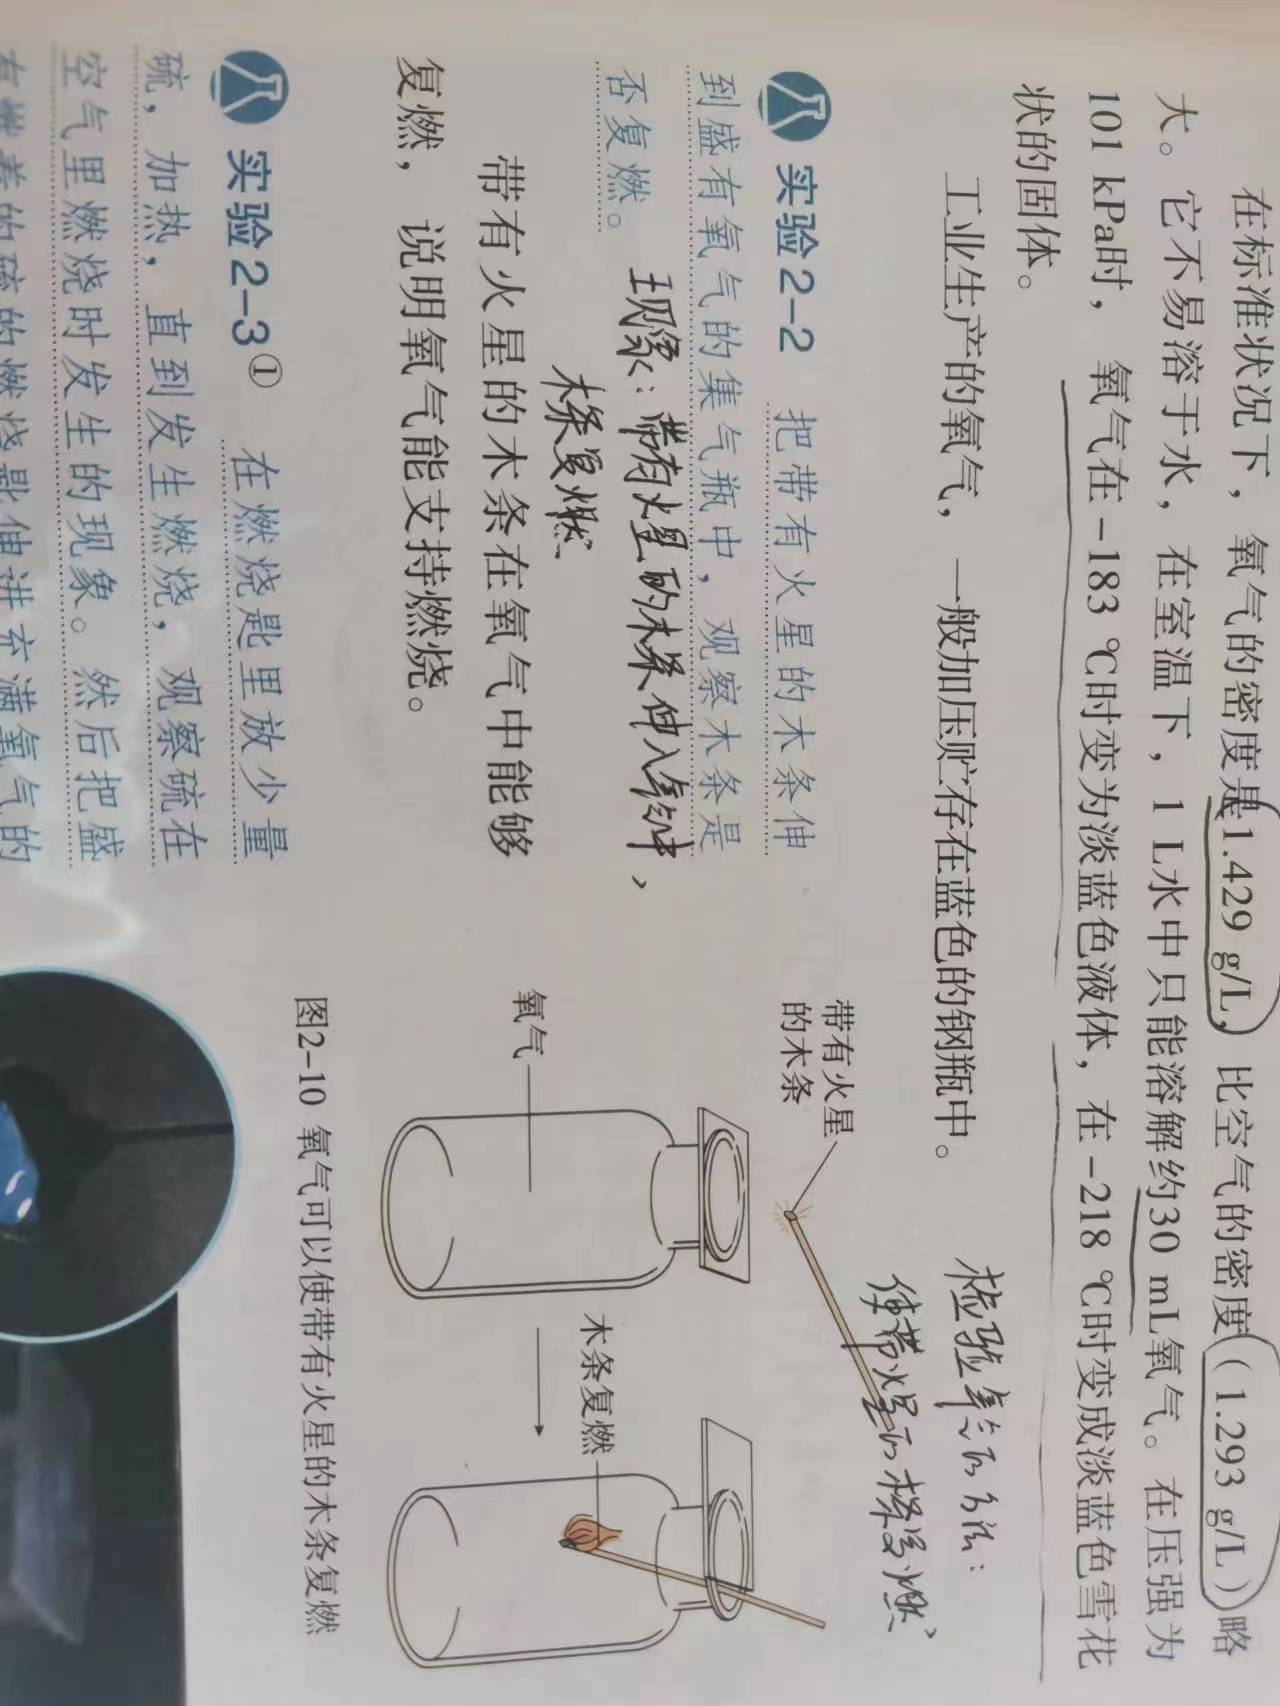 在标准状况下，氧气的密度是1.429 g/L，比空气的密度（1.293 g/L）略
大。它不易溶于水，在室温下，1 L水中只能溶解约30 mL氧气。在压强为
101 kPa时，氧气在-183 ℃时变为淡蓝色液体，在-218 ℃时变成淡蓝色雪花
状的固体。
工业生产的氧气，一般加压贮存在蓝色的钢瓶中。
检验氧气的方法：
使带火星的木条复燃，
实验2-2 把带有火星的木条伸
到盛有氧气的集气瓶中，观察木条是
否复燃。
现象：带有火星的木条伸入氧气中，
木条复燃
带有火星的木条在氧气中能够
复燃，说明氧气能支持燃烧。
带有火星
的木条
氧气
木条复燃
图2-10 氧气可以使带有火星的木条复燃
实验2-3① 在燃烧匙里放少量
硫，加热，直到发生燃烧，观察硫在
空气里燃烧时发生的现象。然后把盛
有燃着的硫的燃烧匙伸进充满氧气的